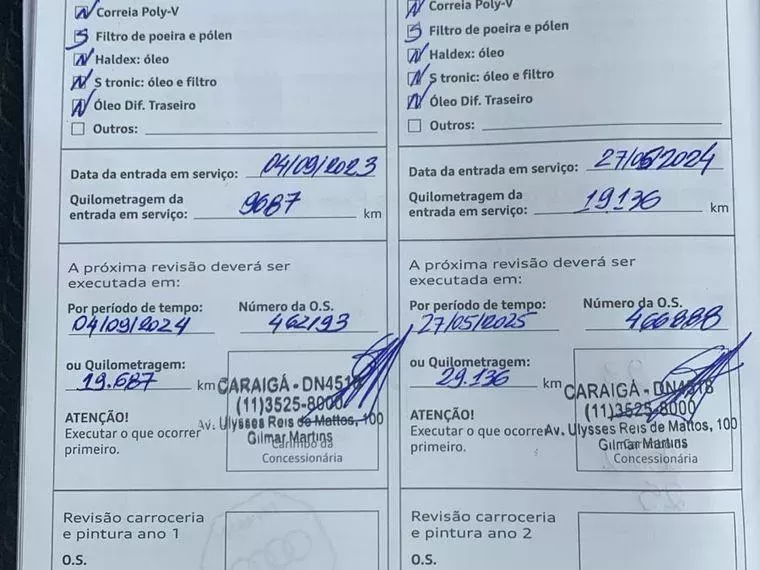 N Correia Poly-V
S Filtro de poeira e pólen
N Haldex: óleo
N S tronic: óleo e filtro
N Óleo Dif. Traseiro
Outros:
Data da entrada em serviço: 04/09/2023
Quilometragem da
entrada em serviço: 9687 km
A próxima revisão deverá ser
executada em:
Por período de tempo: Número da O.S.
04/09/2024 462193
ou Quilometragem:
19.687 km
CARAIGÁ - DN4518
(11)3525-8000
Av. Ulysses Reis de Mattos, 100
Gilmar Martins
ATENÇÃO!
Executar o que ocorrer
primeiro.
Carimbo da
Concessionária
Revisão carroceria
e pintura ano 1
O.S.
N Correia Poly-V
S Filtro de poeira e pólen
N Haldex: óleo
N S tronic: óleo e filtro
N Óleo Dif. Traseiro
Outros:
Data da entrada em serviço: 27/05/2024
Quilometragem da
entrada em serviço: 19.136 km
A próxima revisão deverá ser
executada em:
Por período de tempo: Número da O.S.
27/05/2025 466888
ou Quilometragem:
29.136 km
CARAIGÁ - DN4518
(11)3525-8000
Av. Ulysses Reis de Mattos, 100
Gilmar Martins
ATENÇÃO!
Executar o que ocorrer
primeiro.
Carimbo da
Concessionária
Revisão carroceria
e pintura ano 2
O.S.